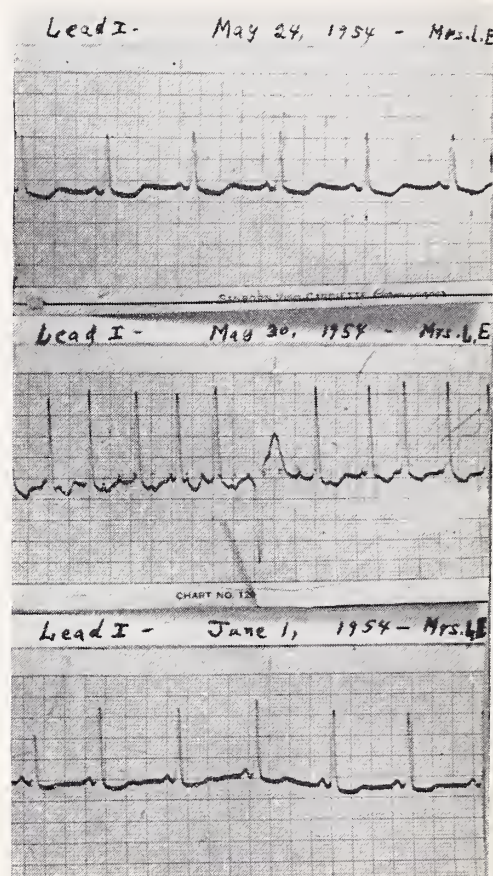 Lead I - May 24, 1954 - Mrs. L.E
SANBORN Viso-CARDIETTE
Lead I - May 30, 1954 - Mrs. L.E
CHART NO. 12
Lead I - June 1, 1954 - Mrs. L.E